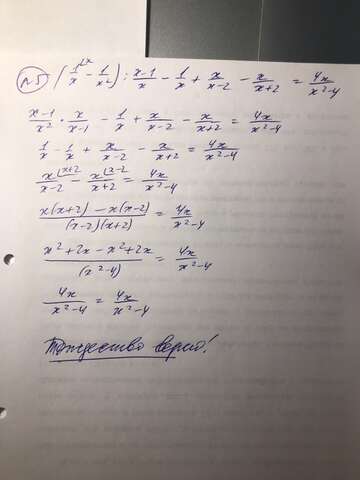 №5 (1/x - 1/x²) : x-1/x - 1/x + x/x-2 - x/x+2 = 4x/x²-4
x-1/x² · x/x-1 - 1/x + x/x-2 - x/x+2 = 4x/x²-4
1/x - 1/x + x/x-2 - x/x+2 = 4x/x²-4
x^(x+2)/x-2 - x^(x-2)/x+2 = 4x/x²-4
x(x+2) - x(x-2)/(x-2)(x+2) = 4x/x²-4
x²+2x-x²+2x/(x²-4) = 4x/x²-4
4x/x²-4 = 4x/x²-4
Тождество верно!